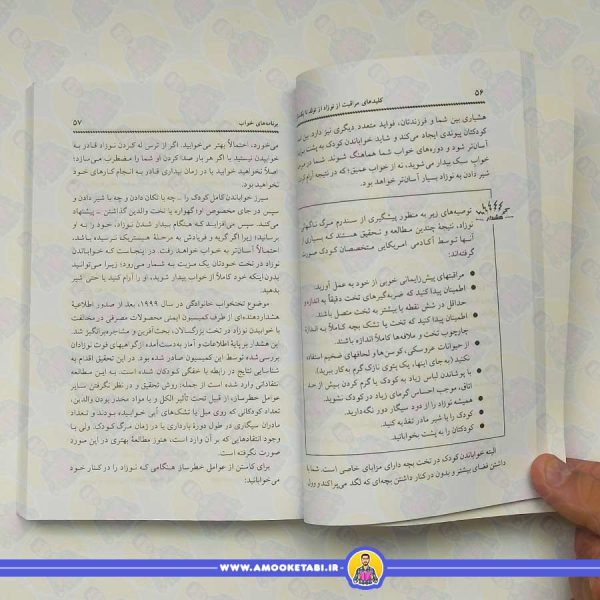 ۵۶
کلیدهای مراقبت از نوزاد از تولد تا یک
هشیاری بین شما و فرزندتان، فواید متعدد دیگری نیز دارد. بین
کودکتان پیوندی ایجاد می‌کند و شاید خواباندن کودک به پشت
آسان‌تر شود و دوره‌های خواب شما هماهنگ شوند. شما در
خواب سبک بیدار می‌شوید، نه از خواب عمیق؛ که در نتیجه آرام کردن
شیر دادن به نوزاد بسیار آسان‌تر خواهد بود.
توصیه‌های زیر به منظور پیشگیری از سندرم مرگ ناگهانی
نوزاد، نتیجهٔ چندین مطالعه و تحقیق هستند که بسیاری از
آنها توسط آکادمی امریکایی متخصصان کودک صورت
گرفته‌اند:
مراقبتهای پیش‌زایمانی خوبی از خود به عمل آورید.
اطمینان پیدا کنید که ضربه‌گیرهای تخت دقیقاً به اندازه و
حداقل در شش نقطه یا بیشتر به تخت متصل باشند.
اطمینان پیدا کنید که تخت یا تشک بچه کاملاً به اندازهٔ
چارچوب تخت و ملافه‌ها کاملاً اندازه باشند.
از حیوانات عروسکی، کوسن‌ها و لحافهای ضخیم استفاده
نکنید (به جای اینها، یک پتوی نازک گرم به کار ببرید)
با پوشاندن لباس زیاد به کودک یا گرم کردن بیش از حد
اتاق، موجب احساس گرمای زیاد در کودک نشوید.
همیشه نوزاد را از دود سیگار دور نگه‌دارید.
کودک را با شیر مادر تغذیه کنید.
کودکتان را به پشت بخوابانید.
البته خواباندن کودک در تخت بچه دارای مزایای خاصی است. شما با
داشتن فضای بیشتر و بدون در کنار داشتن بچه‌ای که لگد می‌پراکند و وول
برنامه‌های خواب
۵۷
می‌خورد، احتمالاً بهتر می‌خوابید. اگر از ترس له کردن نوزاد قادر به
خوابیدن نیستید یا اگر هر بار صدا کردن او شما را مضطرب می‌سازد؛
اصلاً نخواهید خوابید یا در زمان بیداری قادر به انجام کارهای خود
نخواهید بود.
میرز خواباندن کامل کودک را ـ چه با تکان دادن و چه با شیر دادن و
سپس در جای مخصوص او؛ گهواره یا تخت والدین گذاشتن ـ پیشنهاد
می‌کند. سپس می‌افزاید که هنگام بیدار شدن نوزاد، خود را به او
برسانید؛ زیرا اگر گریه و فریادش به مرحلهٔ هیستریک نرسیده باشد،
احتمالاً آسان‌تر به خواب خواهد رفت. در اینجاست که خواباندن
نوزاد در تخت خودتان یک مزیت به شمار می‌رود؛ زیرا می‌توانید
بدون اینکه خود کاملاً از خواب بیدار شوید، او را آرام کنید یا حتی شیر
بدهید.
موضوع تختخواب خانوادگی در سال ۱۹۹۹، بعد از صدور اطلاعیهٔ
هشداردهنده‌ای از طرف کمیسیون ایمنی محصولات مصرفی در مخالفت
با خوابیدن نوزاد در تخت بزرگسالان، بحث‌آفرین و مشاجره‌برانگیز شد.
این هشدار بر پایهٔ اطلاعات و آمار به‌دست آمده از گواهیهای فوت نوزادان
بررسی شده توسط این کمیسیون صادر شده بود. در این تحقیق اقدام به
شناسایی نتایج در رابطه با خفگی کودکان شده است. به این مطالعه
انتقاداتی وارد شده است از جمله: روش تحقیق و در نظر نگرفتن سایر
عوامل خطرساز، از قبیل تحت تأثیر الکل و یا مواد مخدر بودن والدین،
تعداد کودکانی که روی مبل یا تشک‌های آبی خوابیده بودند و تعداد
مادران سیگاری در طول دورهٔ بارداری یا در زمان مرگ کودک. ولی با
وجود انتقادهایی که بر آن وارد است، هنوز مطالعهٔ بهتری در این مورد
صورت نگرفته است.
برای کاستن از عوامل خطرساز هنگامی که نوزاد را در کنار خود
می‌خوابانید:
WWW.AMOOKETABI.IR